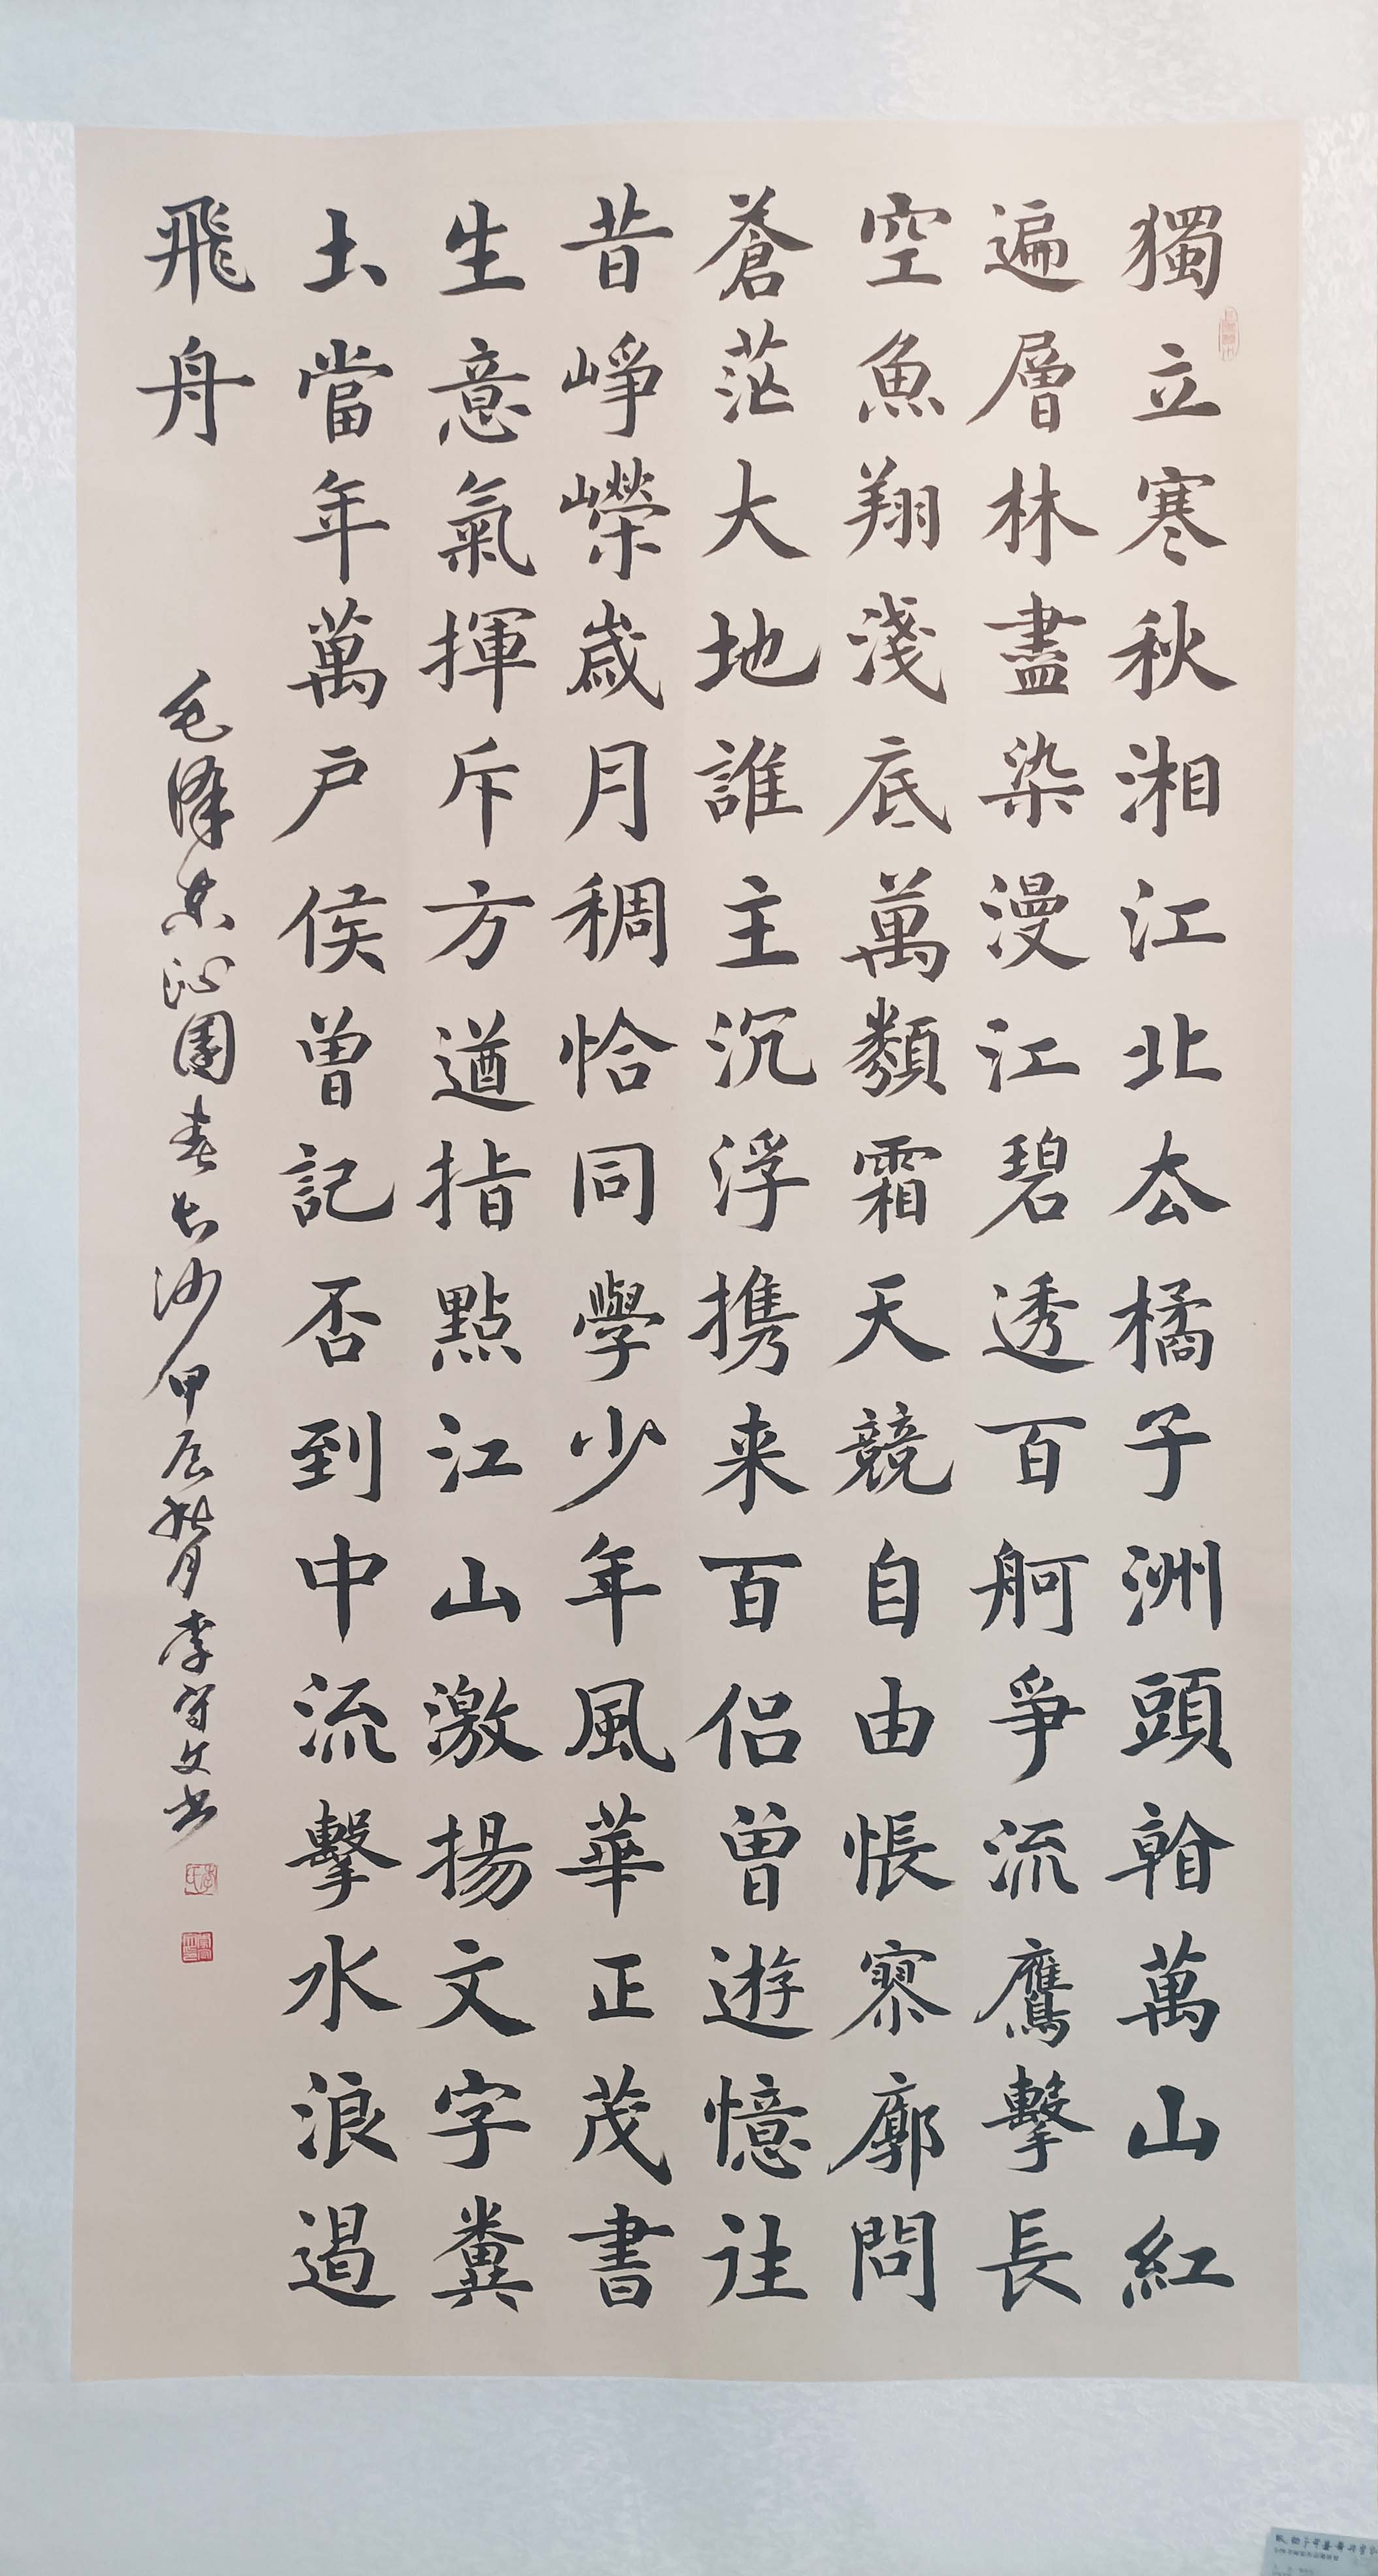 獨立寒秋湘江北厺橘子洲頭䀹萬山紅
遍層林盡染漫江碧透百舸爭流鷹擊長
空魚翔淺底萬類霜天競自由悵寥廓問
蒼茫大地誰主沉浮携来百侣曾遊憶往
昔崢嶸歲月稠恰同學少年風華正茂書
生意氣揮斥方遒指點江山激揚文字糞
土當年萬戶侯曾記否到中流擊水浪遏
飛舟
毛澤东沁園春長沙甲辰秋月李守文书